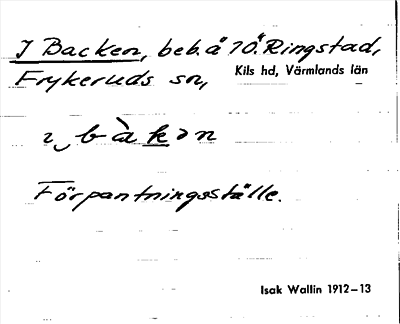 I Backen, beb. å 1 Ö. Ringstad,
Frykeruds sn, Kils hd, Värmlands län
ɩ‿bàkən
Förpantningsställe.
Isak Wallin 1912–13